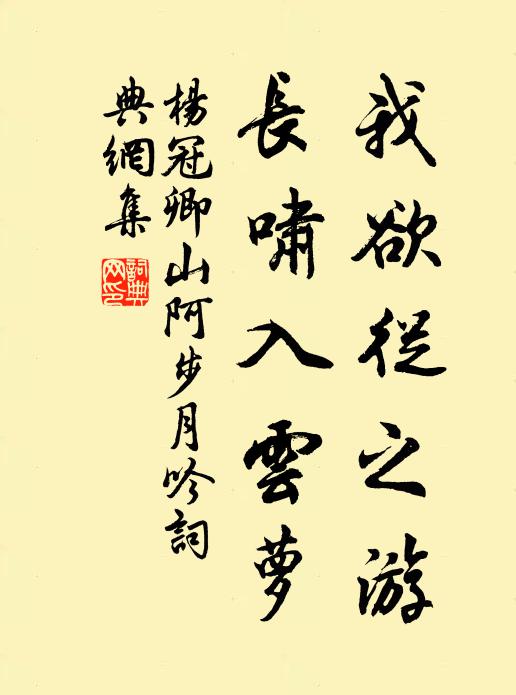 我欲從之游
長嘯入雲夢
楊冠卿山阿步月吟詞
典網集
詞典
网印